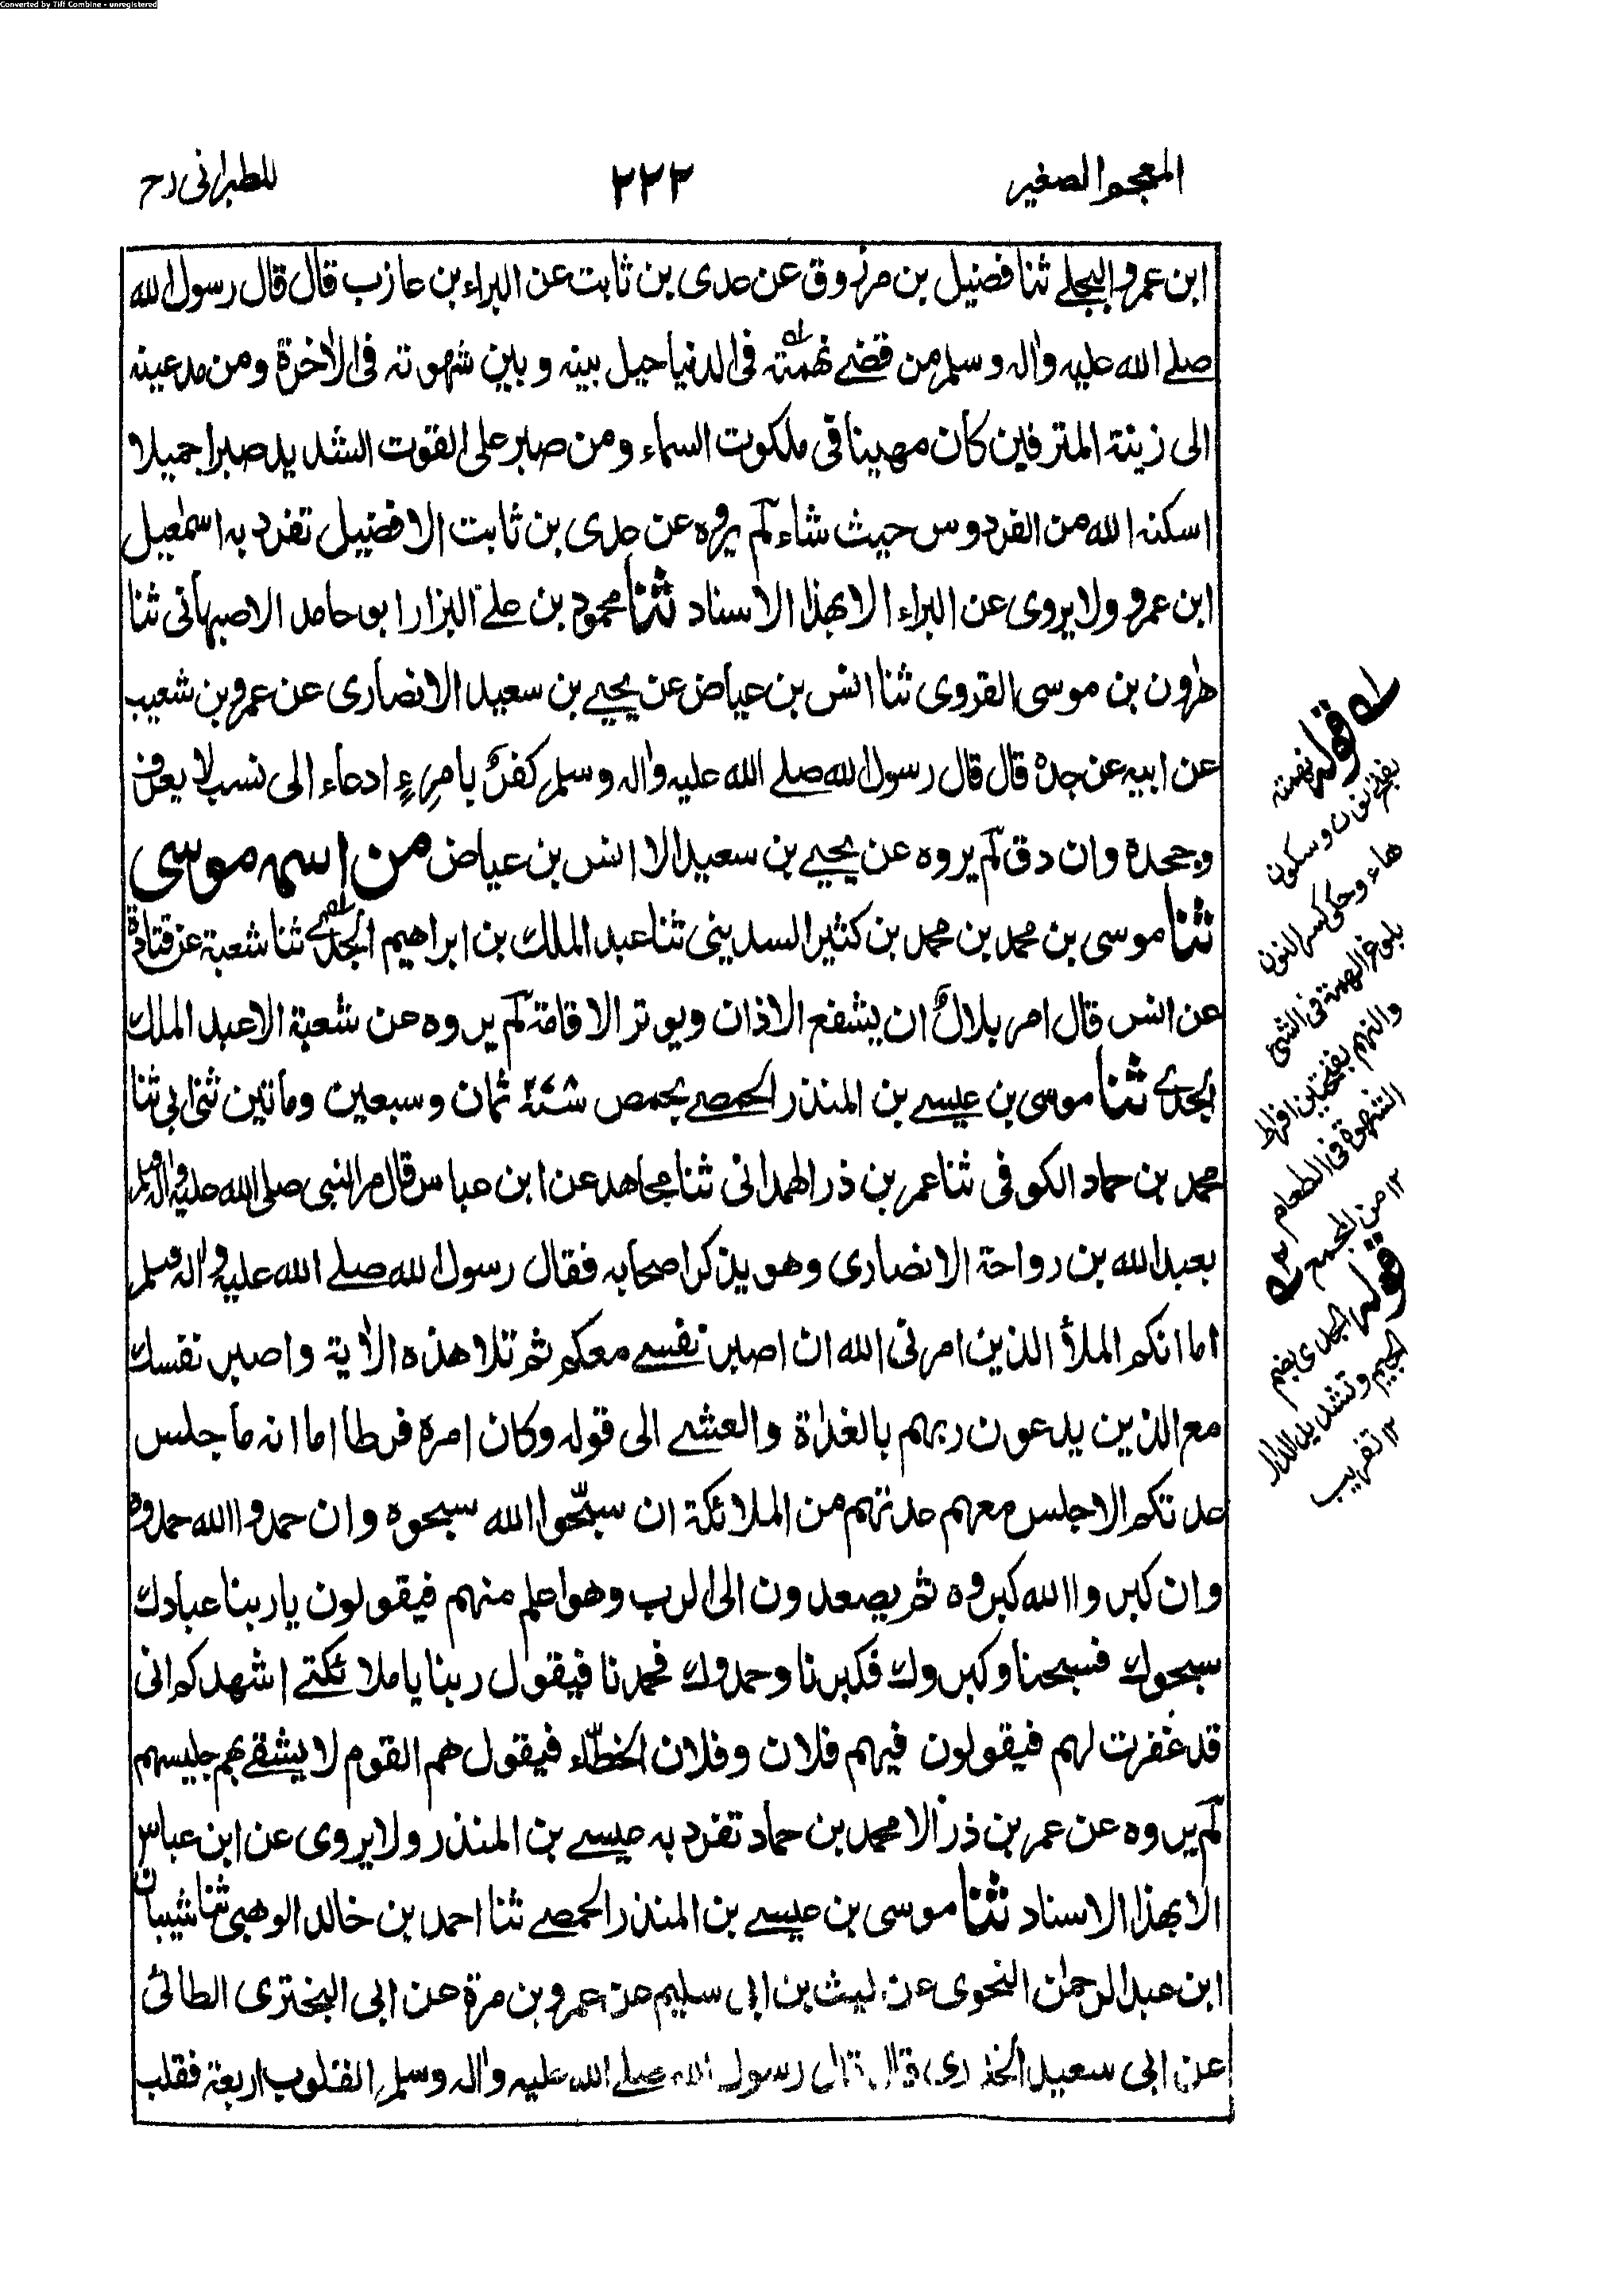 Converted by Tiff Combine - unregistered
المعجم الصغير
۲۲۲
للطبرانی رح
ابن عمرو البجلے ثنا فضیل بن مرزوق عن عدی بن ثابت عن البراء بن عازب قال قال رسول الله
صلے الله علیه واٰله وسلم من قضے نهمته فی الدنیا حیل بینه وبین شهوته فی الاٰخرة ومن مد عینه
الی زینة المترفین کان مهینا فی ملکوت السماء ومن صابر علی القوت الشدید صبرا جمیلا
اسکنه الله من الفردوس حیث شاء لم یروه عن عدی بن ثابت الا فضیل تفرد به اسمٰعیل
ابن عمرو ولا یروی عن البراء الا بهذا الاسناد ثنا محمود بن علے البزار ابو حامد الاصبهانی ثنا
هٰرون بن موسی القروی ثنا انس بن عیاض عن یحیے بن سعید الانصاری عن عمرو بن شعیب
عن ابیه عن جده قال قال رسول الله صلے الله علیه واٰله وسلم کفرٌ بامرءٍ ادعاء الی نسب لا یعرف
وجحده وان دق لم یروه عن یحیے بن سعید الا انس بن عیاض من اسمه موسی
ثنا موسی بن محمد بن محمد بن کثیر السدینی ثنا عبد الملك بن ابراهیم الجدے ثنا شعبة عن قتادة
عن انس قال امر بلالٌ ان یشفع الاذان ویوتر الاقامة لم یروه عن شعبة الا عبد الملك
الجدے ثنا موسی بن عیسے بن المنذر الحمصے بحمص سنة ثمان وسبعین وماتین ثنی ابی ثنا
محمد بن حماد الکوفی ثنا عمر بن ذر الهمدانی ثنا مجاهد عن ابن عباس قال مر النبی صلی الله علیه واٰله وسلم
بعبد الله بن رواحة الانصاری وهو یذکر اصحابه فقال رسول الله صلے الله علیه واٰله وسلم
اما انکم الملأ الذین امرنی الله ان اصبر نفسے معکم ثم تلا هذه الاٰیة واصبر نفسك
مع الذین یدعون ربهم بالغداة والعشے الی قوله وکان امره فرطا اما انه ما جلس
عدتکم الا جلس معهم عدتهم من الملائکة ان سبّحوا الله سبحوه وان حمدوا الله حمدوه
وان کبروا الله کبروه ثم یصعدون الی الرب وهو اعلم منهم فیقولون یا ربنا عبادك
سبحوك فسبحنا وکبروك فکبرنا وحمدوك فحمدنا فیقول ربنا یا ملائکتے اشهدکم انی
قد غفرت لهم فیقولون فیهم فلان وفلان الخطّاء فیقول هم القوم لا یشقے بهم جلیسهم
لم یروه عن عمر بن ذر الا محمد بن حماد تفرد به عیسے بن المنذر ولا یروی عن ابن عباس
الا بهذا الاسناد ثنا موسی بن عیسے بن المنذر الحمصے ثنا احمد بن خالد الوهبی ثنا شیبان
ابن عبد الرحمٰن النحوی عن لیث بن ابی سلیم عن عمرو بن مرة عن ابی البختری الطائی
عن ابی سعید الخدری قال قال رسول الله صلے الله علیه واٰله وسلم القلوب اربعة فقلب
له قوله نهمته
بفتح نون وسکون
هاء وحکی کسر النون
بلوغ الهمة فی الشیٔ
والنهم بفتحتین افراط
الشهوة فی الطعام
۱۲ من المجمع
قوله الجدی بضم
الجیم وتشدید الدال
۱۲ تقریب